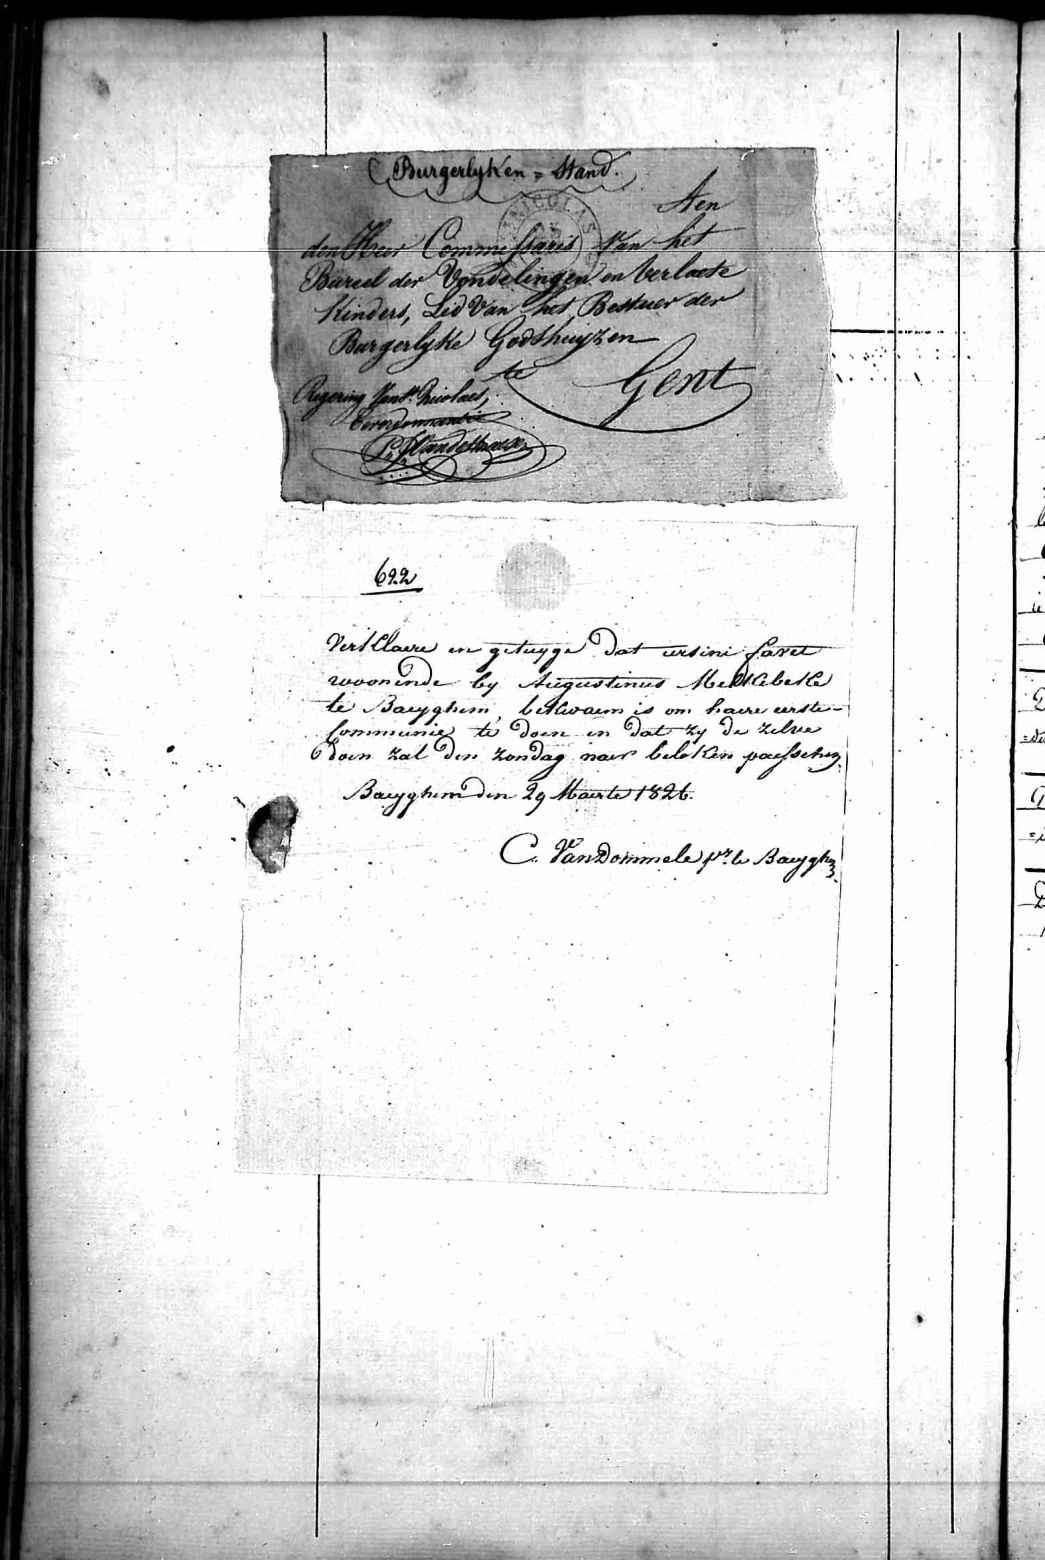 Burgerlyken = Stand.
Aen
den Heer Commissaris Van het
Bureel der Vondelingen en Verlaete
Kinders, Lid Van het Bestuer der
Burgerlyke Godshuyzen
te Gent
Regering Van St. Nicolaes,
NICOLAS
622
Verklaere en getuyge dat ursini favet
woonende by Augustinus Melkebeke
te Baeyghem, bekwaem is om haere eerste
Communie te doen en dat zy de zelve
doen zal den zondag naer beloken paesschen,
Baeyghem den 29 Maerte 1826.
C. Van Dommele pr. te Baeyghem